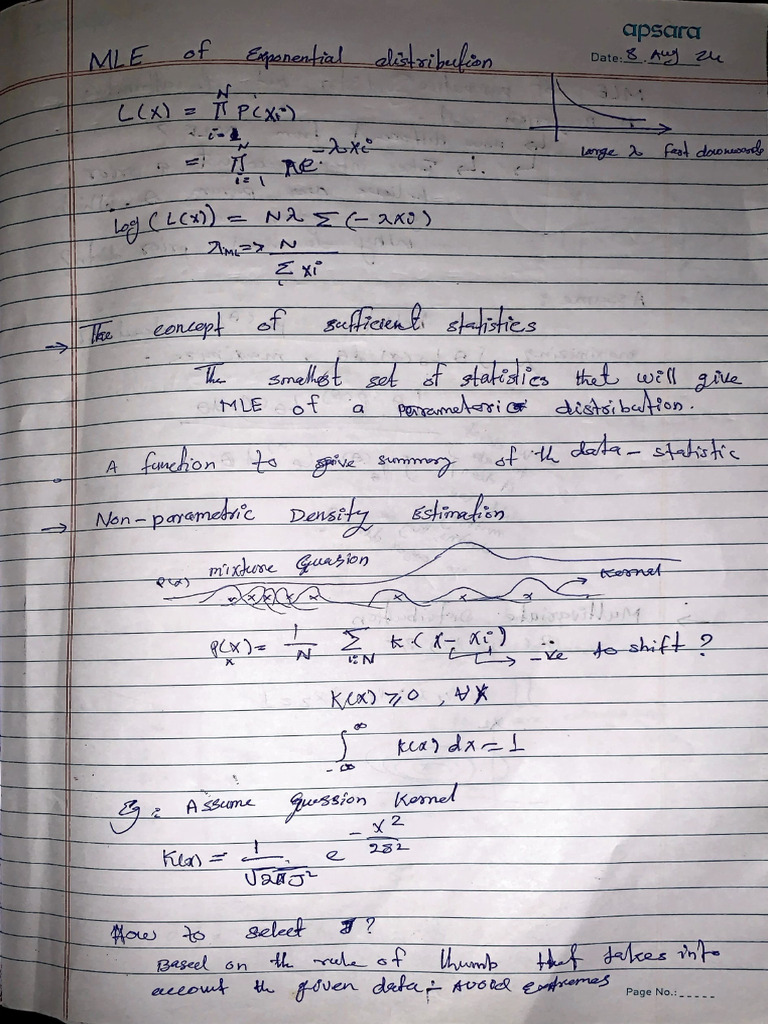 apsara
MLE of Exponential distribution
Date: 8 Aug 24
L(x) = N Π i=1 P(xi)
= N Π i=1 λe^-λxi
Large λ fast downwards
log(L(x)) = Nλ Σ(-λxi)
λML => N / Σ xi
→ The concept of sufficient statistics
The smallest set of statistics that will give
MLE of a parametoric distribution.
. A function to give summary of th data - statistic
→ Non-parametric Density Estimation
P(x) mixture Guasion
Kernel
P(x) = 1/N Σ i=N k(x - xi) → -ive to shift?
x
K(x) ≥ 0, ∀x
∫ -∞ ∞ k(x) dx = 1
Eg: Assume guession Kernel
K(x) = 1/√2πσ² e^-x²/2σ²
How to select σ?
Based on th rule of thumb that takes into
account th given data - Avoid extremes
Page No.: